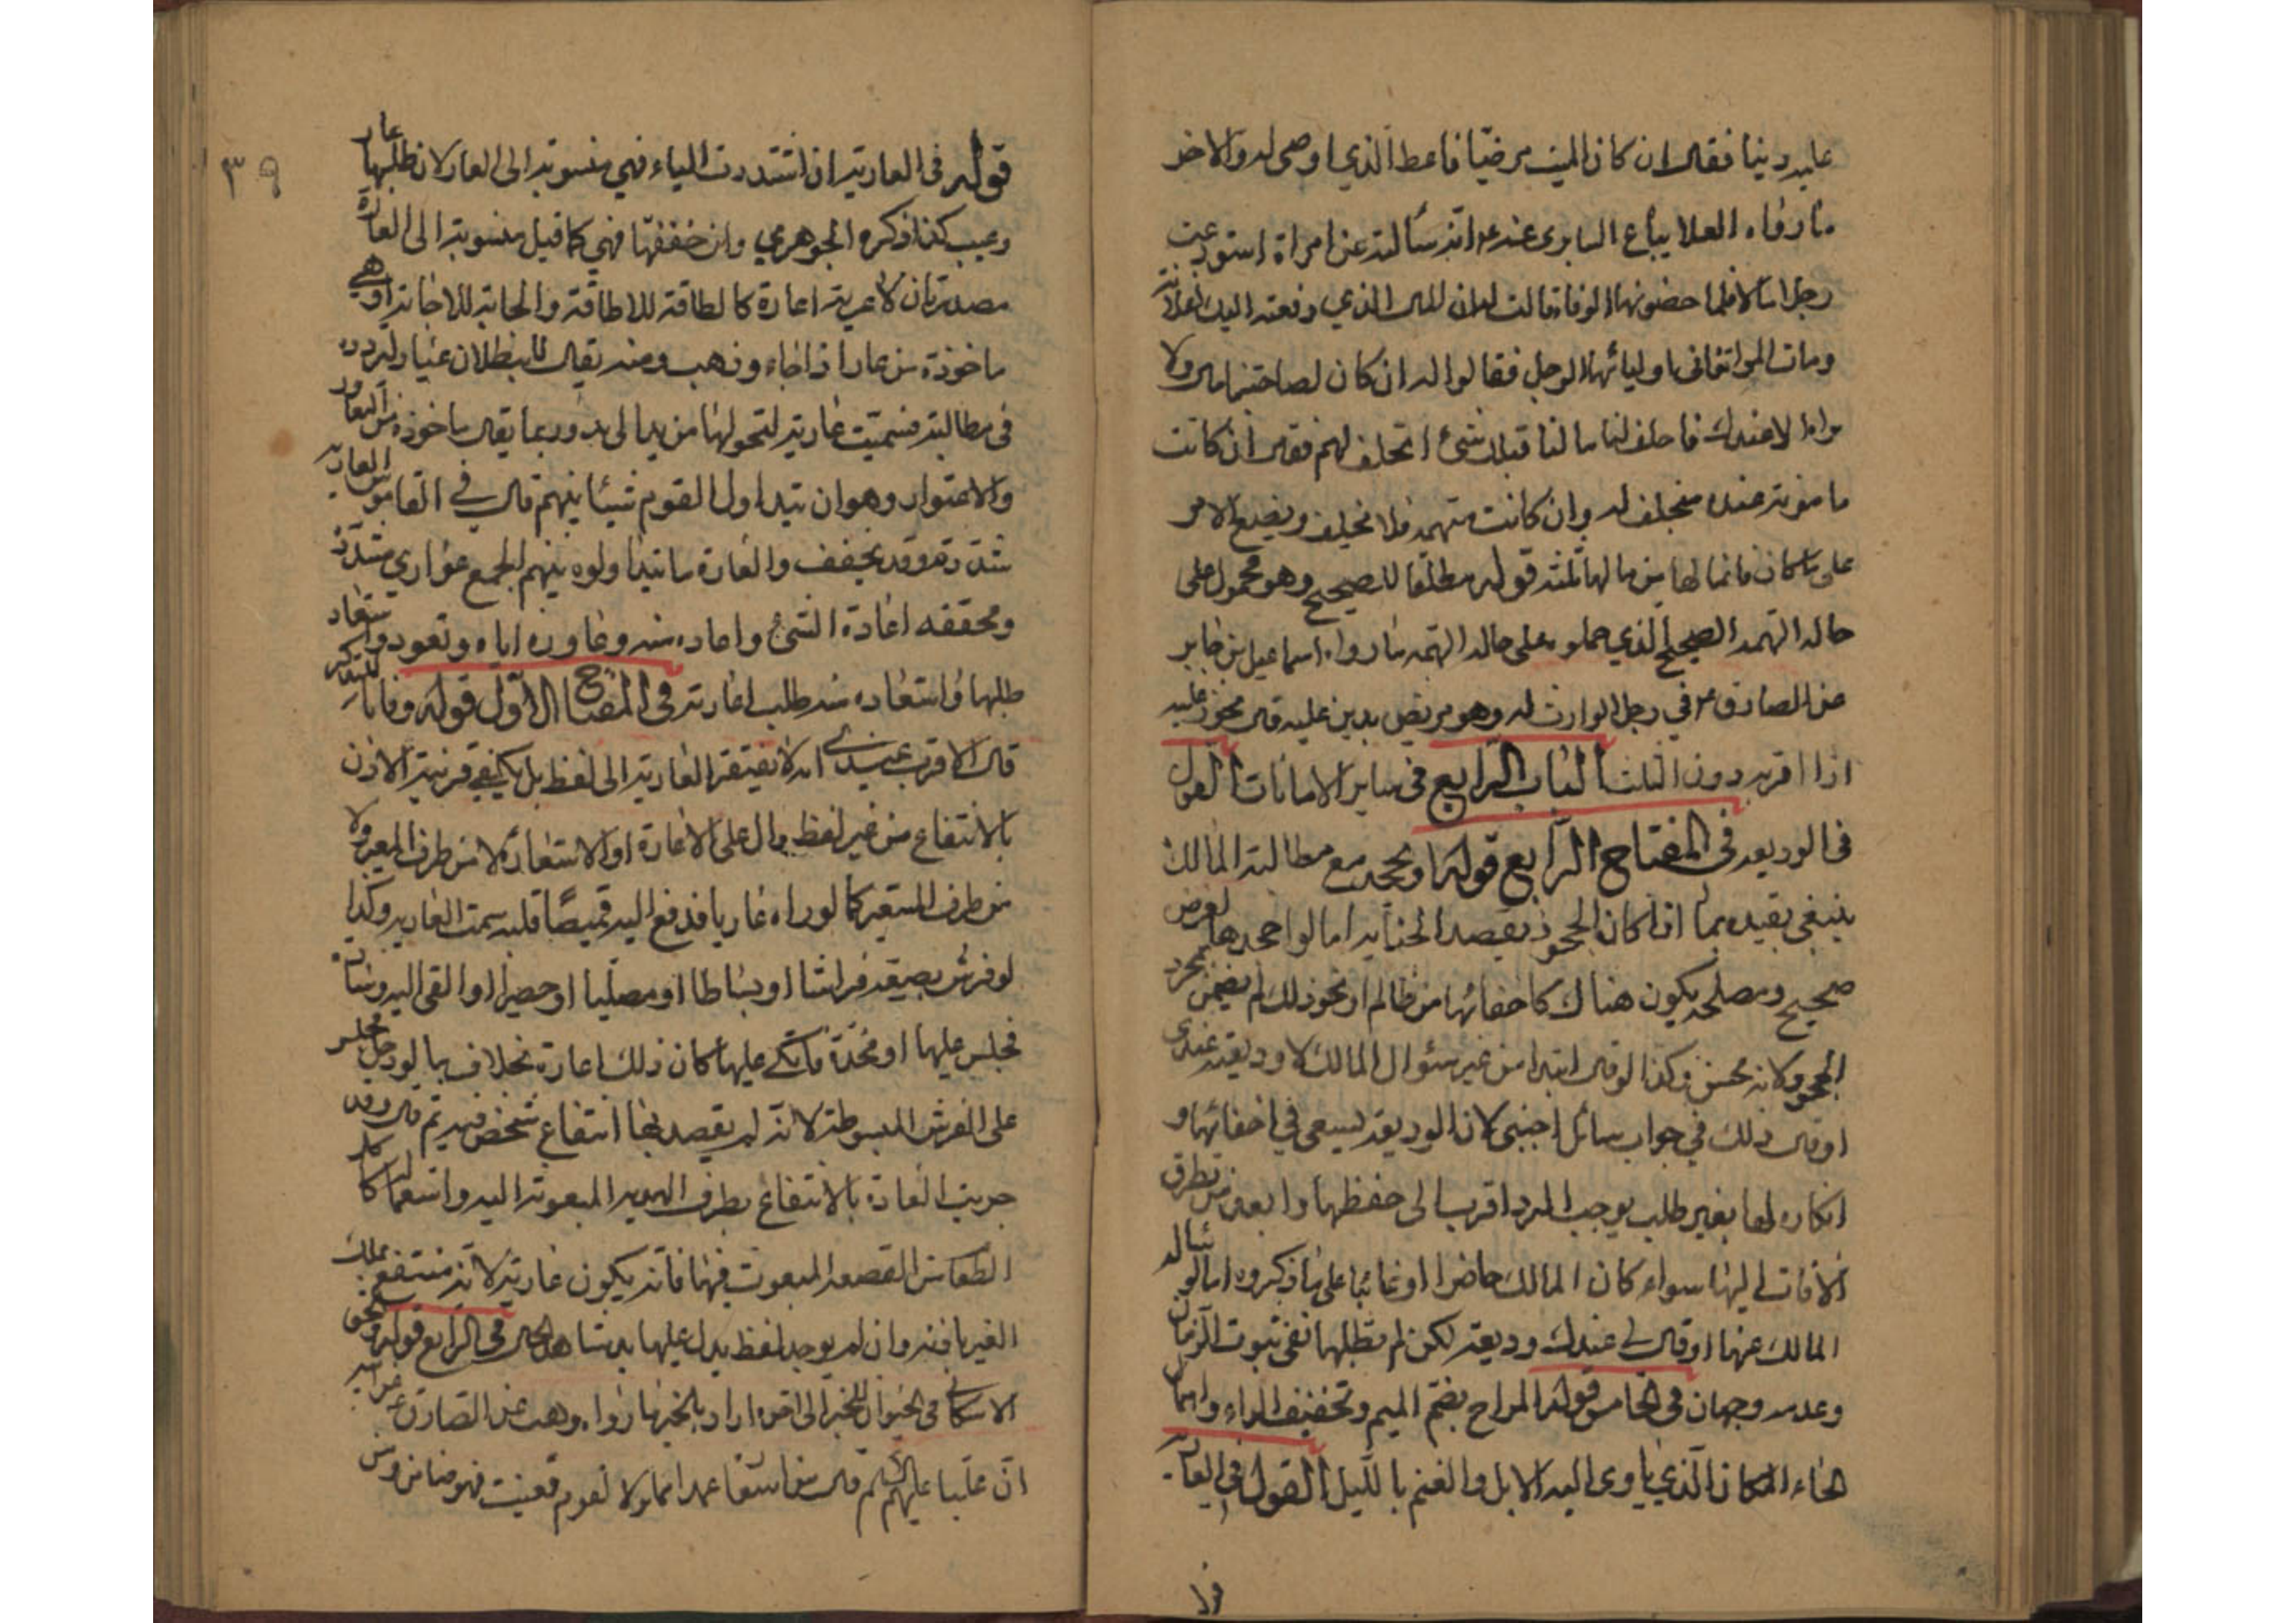 عليه دينا فقال ان كان الميت مرضيا فاعط الذي اوصى له والاخر
ما رواه العلا بياع السابري عنه ع انه سألته عن امراة استودعت
رجلا مالا فلما حضرتها الوفاة قالت له ان المال الذي دفعته اليك لفلانة
وماتت المراة فاتى اولياؤها الرجل فقالوا له ان كان لصاحبتنا مال ولا
نراه الا عندك فاحلف لنا ما لنا قبلك شئ ا تحلف لهم فقال ان كانت
مامونة عنده فيحلف لهم وان كانت متهمة فلا تحلف ويضع الامر
على ما كان فانما لها من مالها ثلثه قوله مطلقا للصحيح وهو محمول على
حالة التهمة الصحيح الذي حملوه على حالة التهمة ما رواه اسماعيل بن جابر
عن الصادق ع في رجل اقر لوارث له وهو مريض بدين عليه قال يجوز عليه
اذا اقر به دون الثلث الباب الرابع في ساير الامانات القول
في الوديعة في المفتاح الرابع قوله او يجحد مع مطالبة المالك
ينبغي تقييده بما اذا كان الجحود يقصد الخيانة اما لو جحدها لغرض
صحيح ومصلحة يكون هناك كاخفائها من ظالم او نحو ذلك لم يضمن بمجرد
الجحود لانه محسن وكذا لو قال ابتدا من غير سئوال المالك لا وديعة عندي
او قال ذلك في جواب سائل اجنبي لان الوديعة ليسعى في اخفائها و
انكاره لها بغير طلب يوجب الرد اقرب الى حفظها وابعد من تطرق
الافات اليها سواء كان المالك حاضرا او غائبا على ما ذكروه اما لو ساله
المالك عنها او قال لي عندك وديعة لكن لم يطلبها ففي ثبوت الزمان
وعدمه وجهان في الخامس قوله المراح بضم الميم وتخفيف الراء واهمال
الحاء المكان الذي ياوى اليه الابل والغنم بالليل القول في العارية
٣٩
قوله في العارية ان شددت الياء فهي منسوبة الى العار لان طلبها عار
وعيب كذا ذكره الجوهري وان خففتها فهي كما قيل منسوبة الى العارة
مصدر ثان لاعرته اعارة كالطاقة للاطاقة والجابة للاجابة او هي
ماخوذة من عار اذا جاء وذهب ومنه يقال للبطال عيار لتردده
في بطالته فسميت عارية لتحولها من يد الى يد وربما يقال ماخوذة من التعاور
والاعتوار وهو ان يتداول القوم شيئا بينهم قال في القاموس العارية
مشددة وقد يخفف والعارة ما تداولوه بينهم الجمع عواري مشددة
ومخففة اعارة الشئ واعاره منه وعاوره اياه وتعور واستعار
طلبها واستعاره منه طلب اعارته في المفتاح الاول قوله وفاقا للتذكرة
قال الاقرب عندي انه لا يفتقر العارية الى لفظ بل يكفي قرينة الاذن
بالانتفاع من غير لفظ دال على الاعارة او الاستعارة لا من طرف المعير ولا
من طرف المستعير كما لو راه عاريا فدفع اليه قميصا فلبسه تمت العارية وكذا
لو فرش لضيفه فراشا او بساطا او مصليا او حصيرا او القى اليه وسادة
فجلس عليها او مخدة فاتكى عليها كان ذلك اعارة بخلاف ما لو دخل فجلس
على الفرش المبسوطة لانه لم يقصد بها انتفاع شخص بعينه ثم قال وقد
جريت العادة بالانتفاع بظرف الهدية المبعوثة اليه واستعماله كاكل
الطعام من القصعة المبعوث فيها فانه يكون عارية لانه منتفع بملك
الغير باذنه وان لم يوجد لفظ يدل عليها بل شاهد الحال في الرابع قوله والحق
الاسكافي الحيوان للخبر الى اخره اراد بالخبر ما رواه وهب عن الصادق عن ابيه
ان عليا عليهم السلم قال من استعار عبدا مملوكا لقوم فعيب فهو ضامن ومن